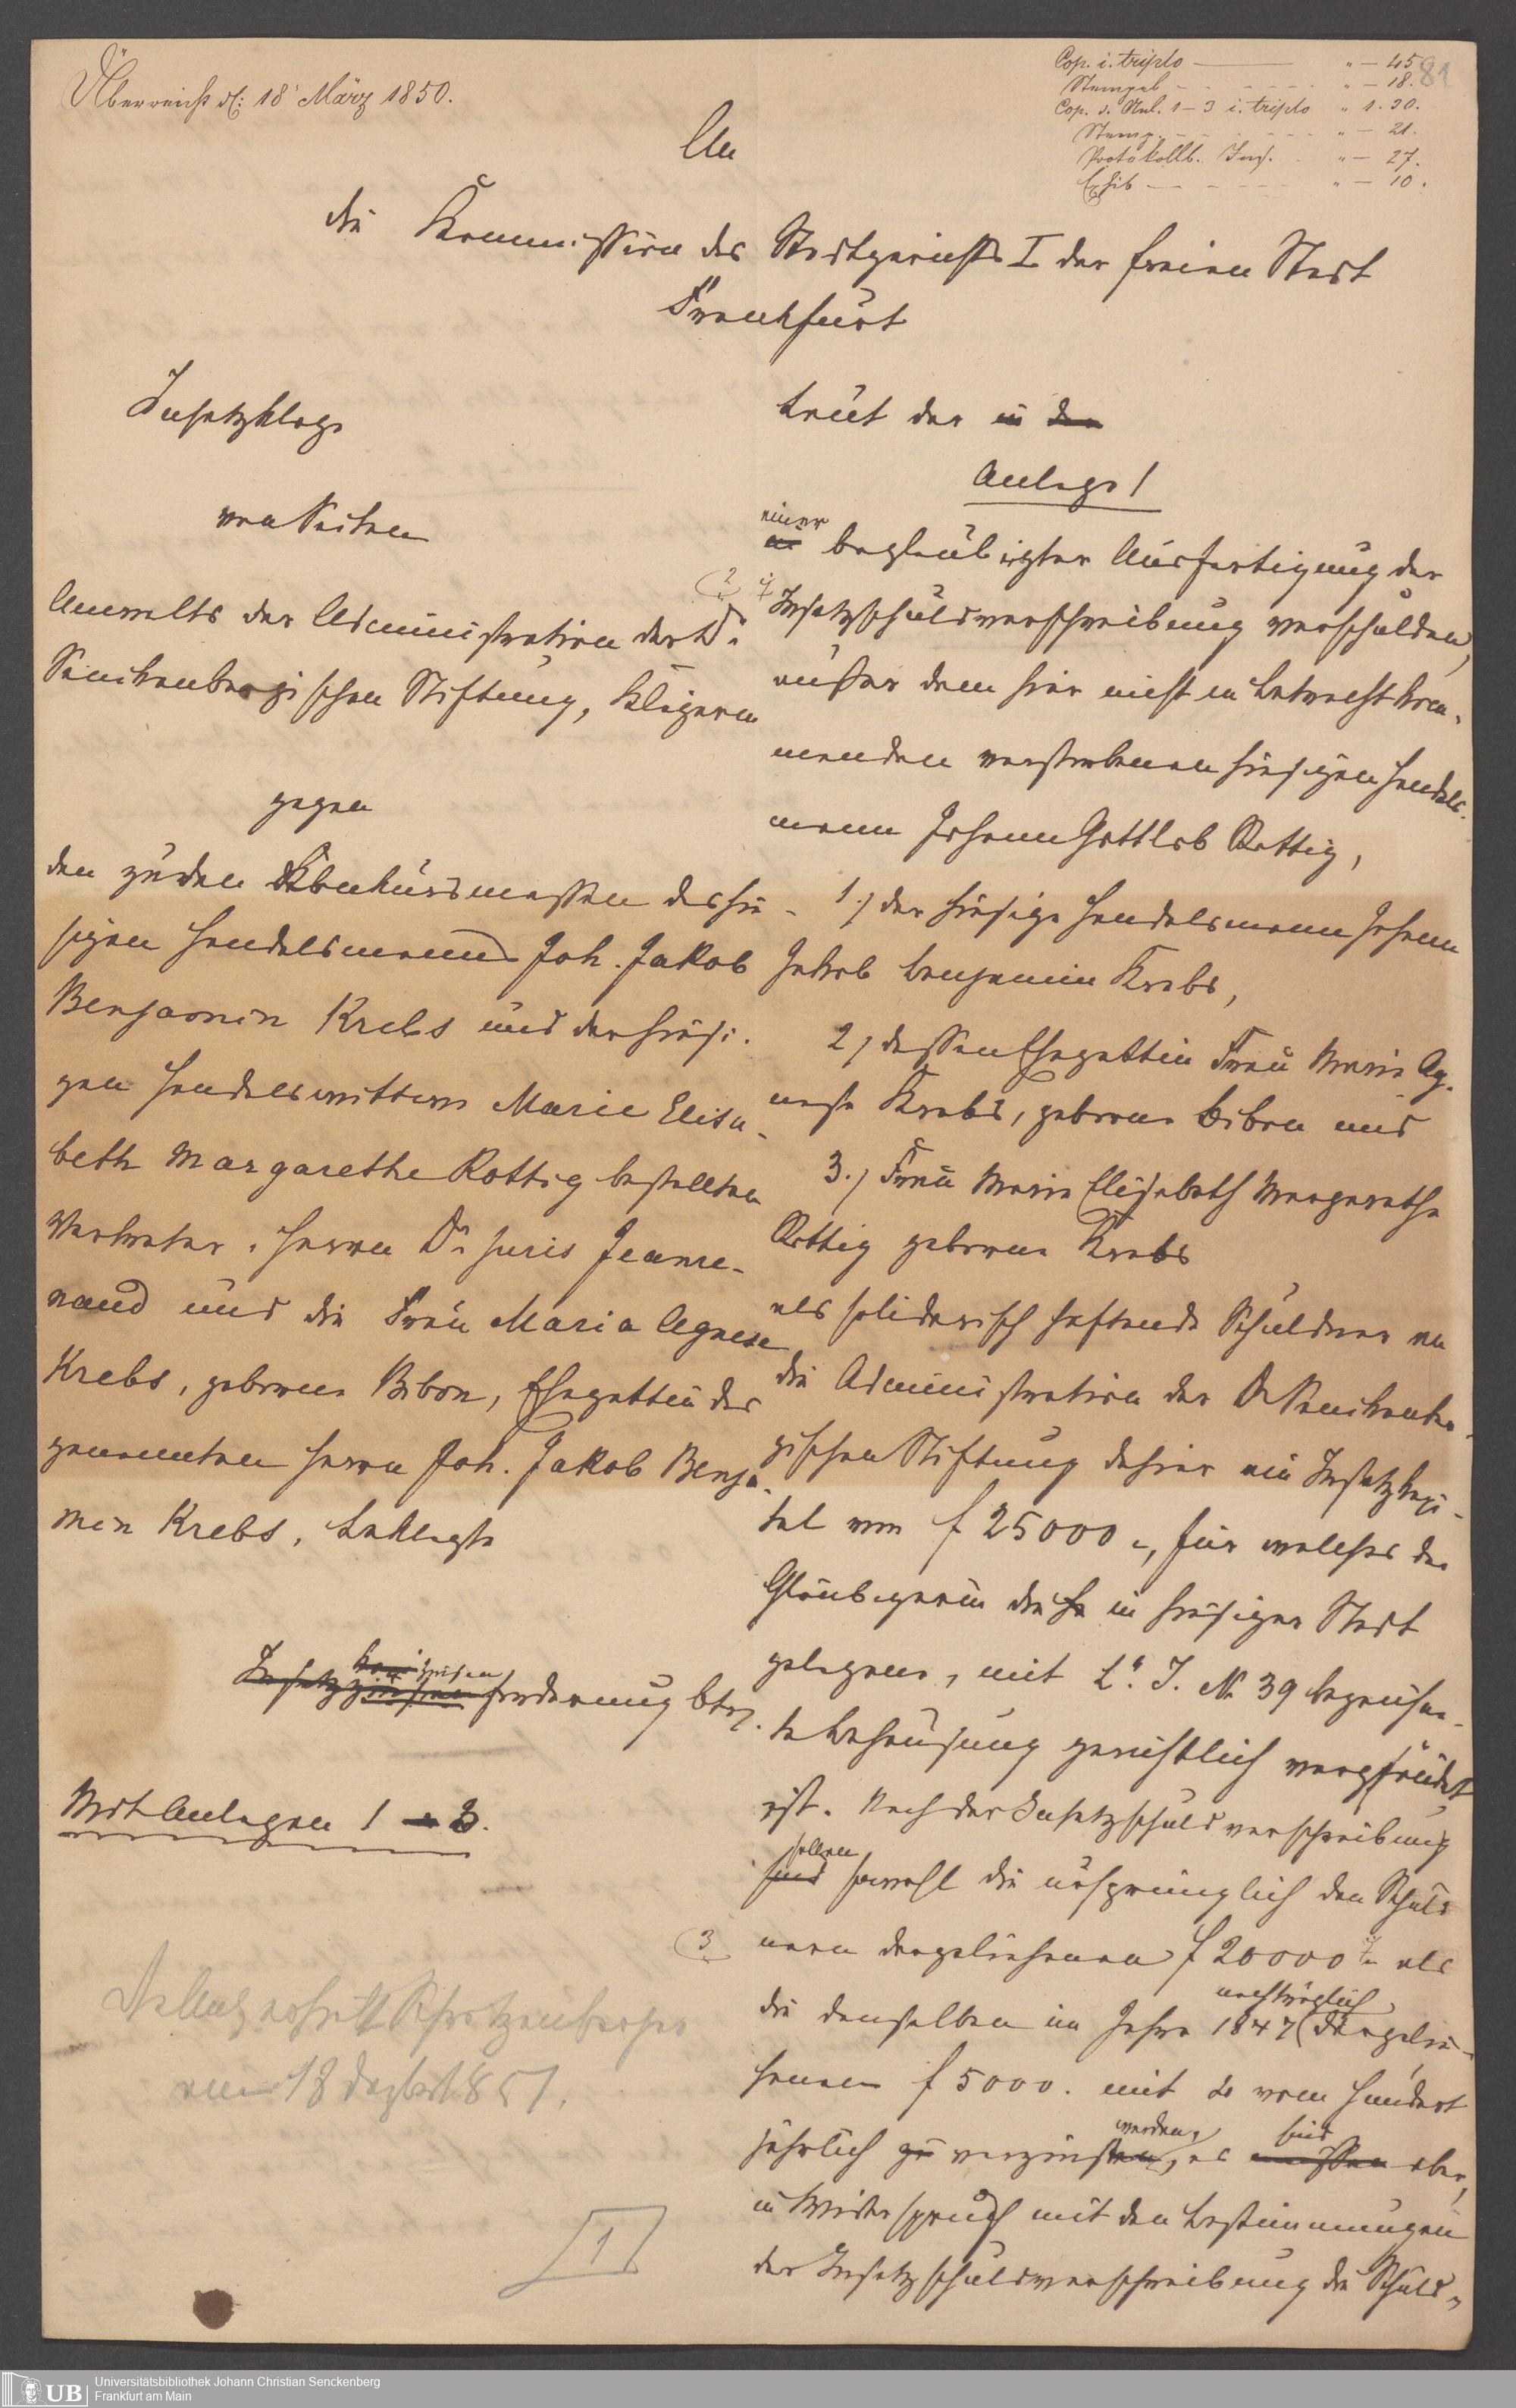 Überreicht d: 18 März 1850.
Cop. i. triplo — " — 45
81
Stempel - - - " — 18.
Cop. d. Anl. 1–3 i. triplo " 1. 30.
Stemp. - - - " — 21.
Protokollb. Ins. " — 27.
Exhib — - - - " — 10.
An
die Kommission des Stadtgerichts I der freien Stadt
Frankfurt
Insatzklage
von Seiten
Anwalts der Administration der Dr.
Senckenbergischen Stiftung, Klägeren
gegen
den zu den Konkursmassen des hie-
sigen Handelsmanns Joh. Jakob
Benjamin Krebs und der hiesi-
gen Handelswittwe Marie Elisa-
beth Margarethe Rottig bestellten
Vertreter, Herrn Dr. juris Jeanre-
naud und die Frau Maria Agnese
Krebs, geborene Bibon, Ehegattin des
genannten Herrn Joh. Jakob Benja-
min Krebs, Beklagte
Insatzzinsen
zinsen
forderung btr.
Mit Anlagen 1 – 3.
am 18 Dezbr 1851.
1
Laut der in den
Anlage 1
einer
in beglaubigter Ausfertigung der
2
Insatzschuldverschreibung verschulden,
außer dem hier nicht in Betracht kom-
menden verstorbenen hiesigen Handels-
mann Johann Gottlob Rottig,
1.) der hiesige Handelsmann Johann
Jakob Benjamin Krebs,
2) dessen Ehegattin Frau Maria Ag-
nese Krebs, geborene Bibon und
3.) Frau Maria Elisabeth Margaretha
Rottig geborene Krebs
als solidarisch haftende Schuldner an
die Administration der Dr Senckenber-
gischen Stiftung dahier ein Insatzkapi-
tal von f 25000 , für welches der
Gläubigerin die in hiesiger Stadt
gelegene, mit L. J. No 39 bezeichne-
te Behausung gerichtlich verpfändet
ist. Nach der Insatzschuldverschreibung
sollen
sind sowohl die ursprünglich den Schuld
3
nern dargeliehenen f 20000 als
nachträglich
die denselben im Jahre 1847 dargelie-
henen f 5000. mit 4 vom Hundert
werden,
sind
jährlich zu verzinsen, es müssen aber,
in Widerspruch mit den Bestimmungen
der Insatzschuldverschreibung die Schuld-
UB
Universitätsbibliothek Johann Christian Senckenberg
Frankfurt am Main